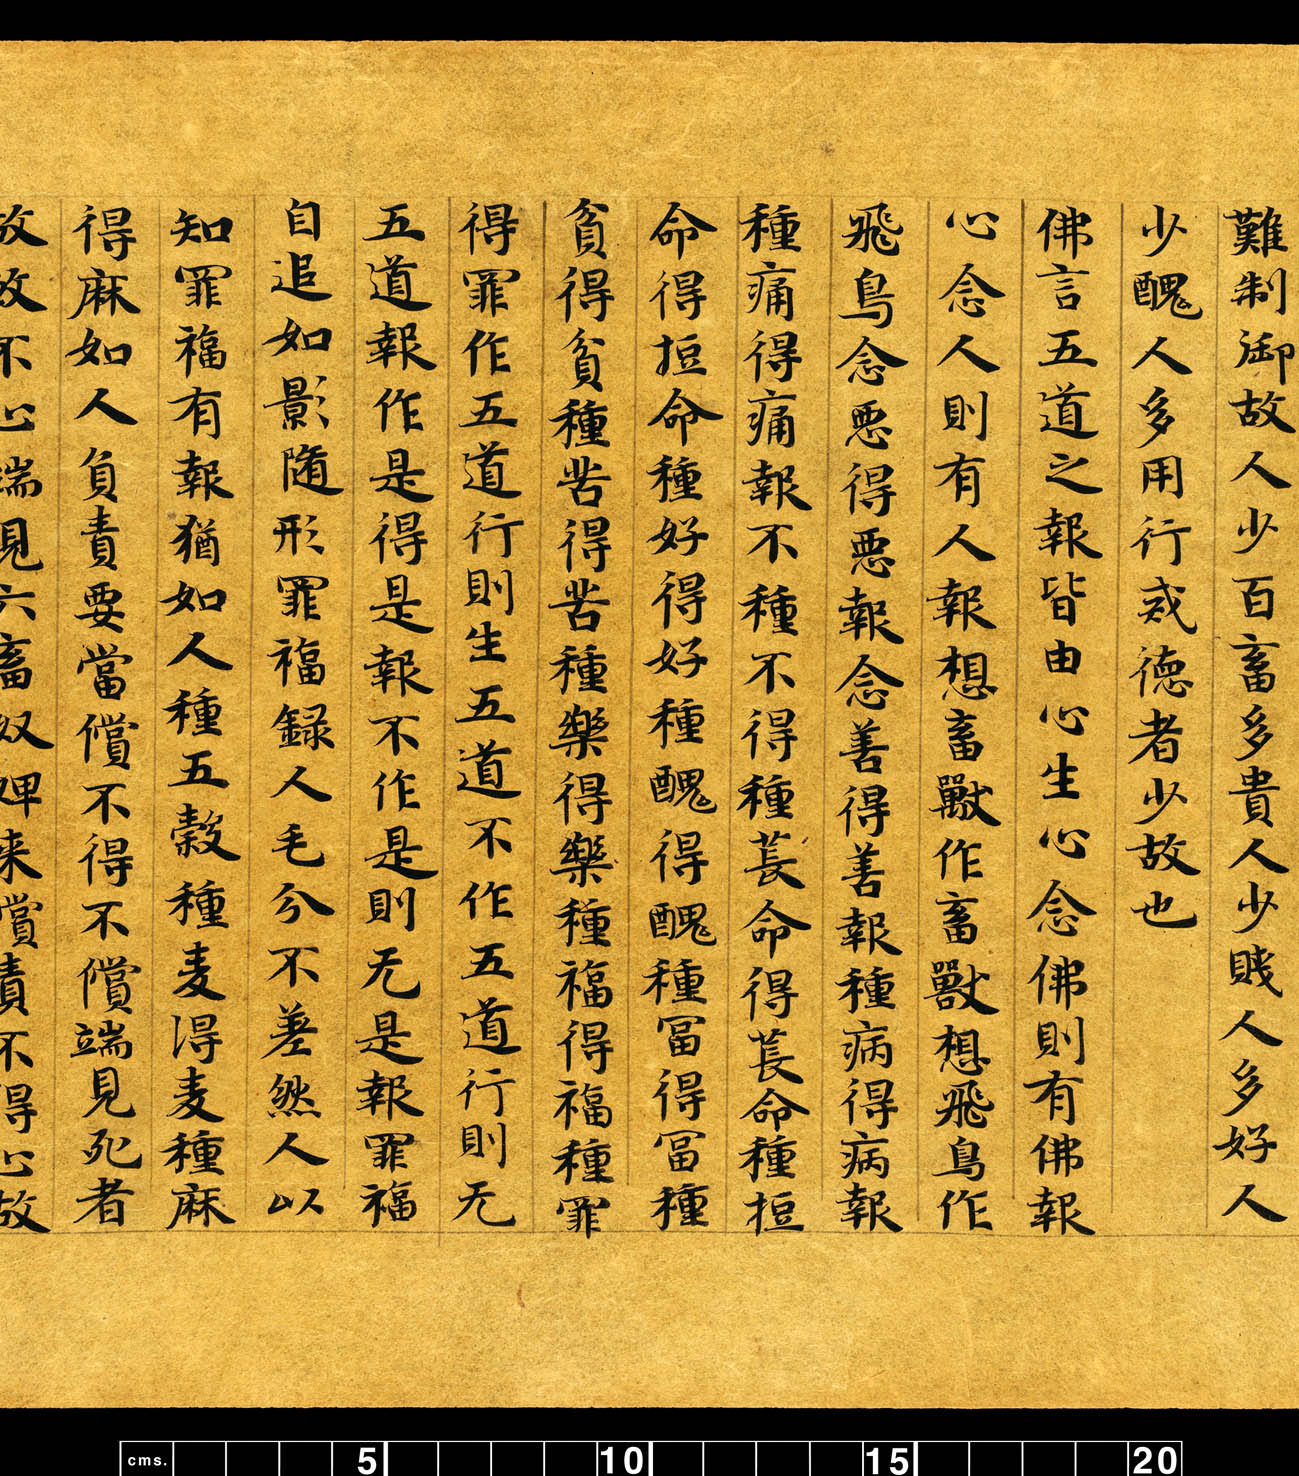 難制御故人少百畜多貴人少賤人多好人
少醜人多用行戒德者少故也
佛言五道之報皆由心生心念佛則有佛報
心念人則有人報想畜獸作畜獸想飛鳥作
飛鳥念惡得惡報念善得善報種病得病報
種痛得痛報不種不得種萇命得萇命種挋
命得挋命種好得好種醜得醜種冨得冨種
貧得貧種苦得苦種樂得樂種福得福種罪
得罪作五道行則生五道不作五道行則无
五道報作是得是報不作是則无是報罪福
自追如影隨形罪福録人毛分不差然人以
知罪福有報猶如人種五穀種麦得麦種麻
得麻如人負責要當償不得不償端見死者
故故不心端見六畜奴婢来償責不得心故
cms. 5 10 15 20